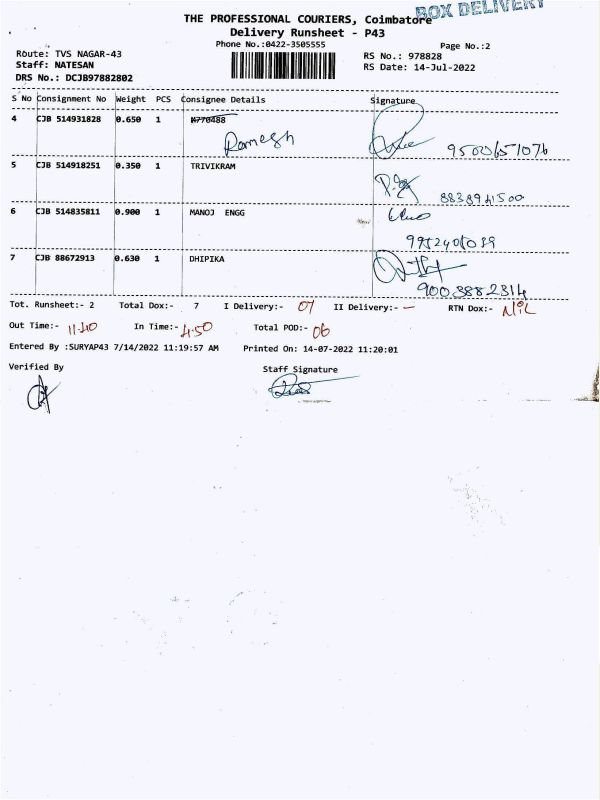 THE PROFESSIONAL COURIERS, Coimbatore
BOX DELIVERY
Delivery Runsheet - P43
Phone No.:0422-3505555
Page No.:2
Route: TVS NAGAR-43
RS No.: 978828
Staff: NATESAN
RS Date: 14-Jul-2022
DRS No.: DCJB97882802
S No Consignment No Weight PCS Consignee Details Signature
4 CJB 514931828 0.650 1 N770488
Ramesh
9500651076
5 CJB 514918251 0.350 1 TRIVIKRAM
8838941500
6 CJB 514835811 0.900 1 MANOJ ENGG
7 CJB 88672913 0.630 1 DHIPIKA
9003882314
Tot. Runsheet:- 2 Total Dox:- 7 I Delivery:- 07 II Delivery:- — RTN Dox:- NiL
Out Time:- 11.40 In Time:- 4.50 Total POD:- 06
Entered By :SURYAP43 7/14/2022 11:19:57 AM Printed On: 14-07-2022 11:20:01
Verified By Staff Signature